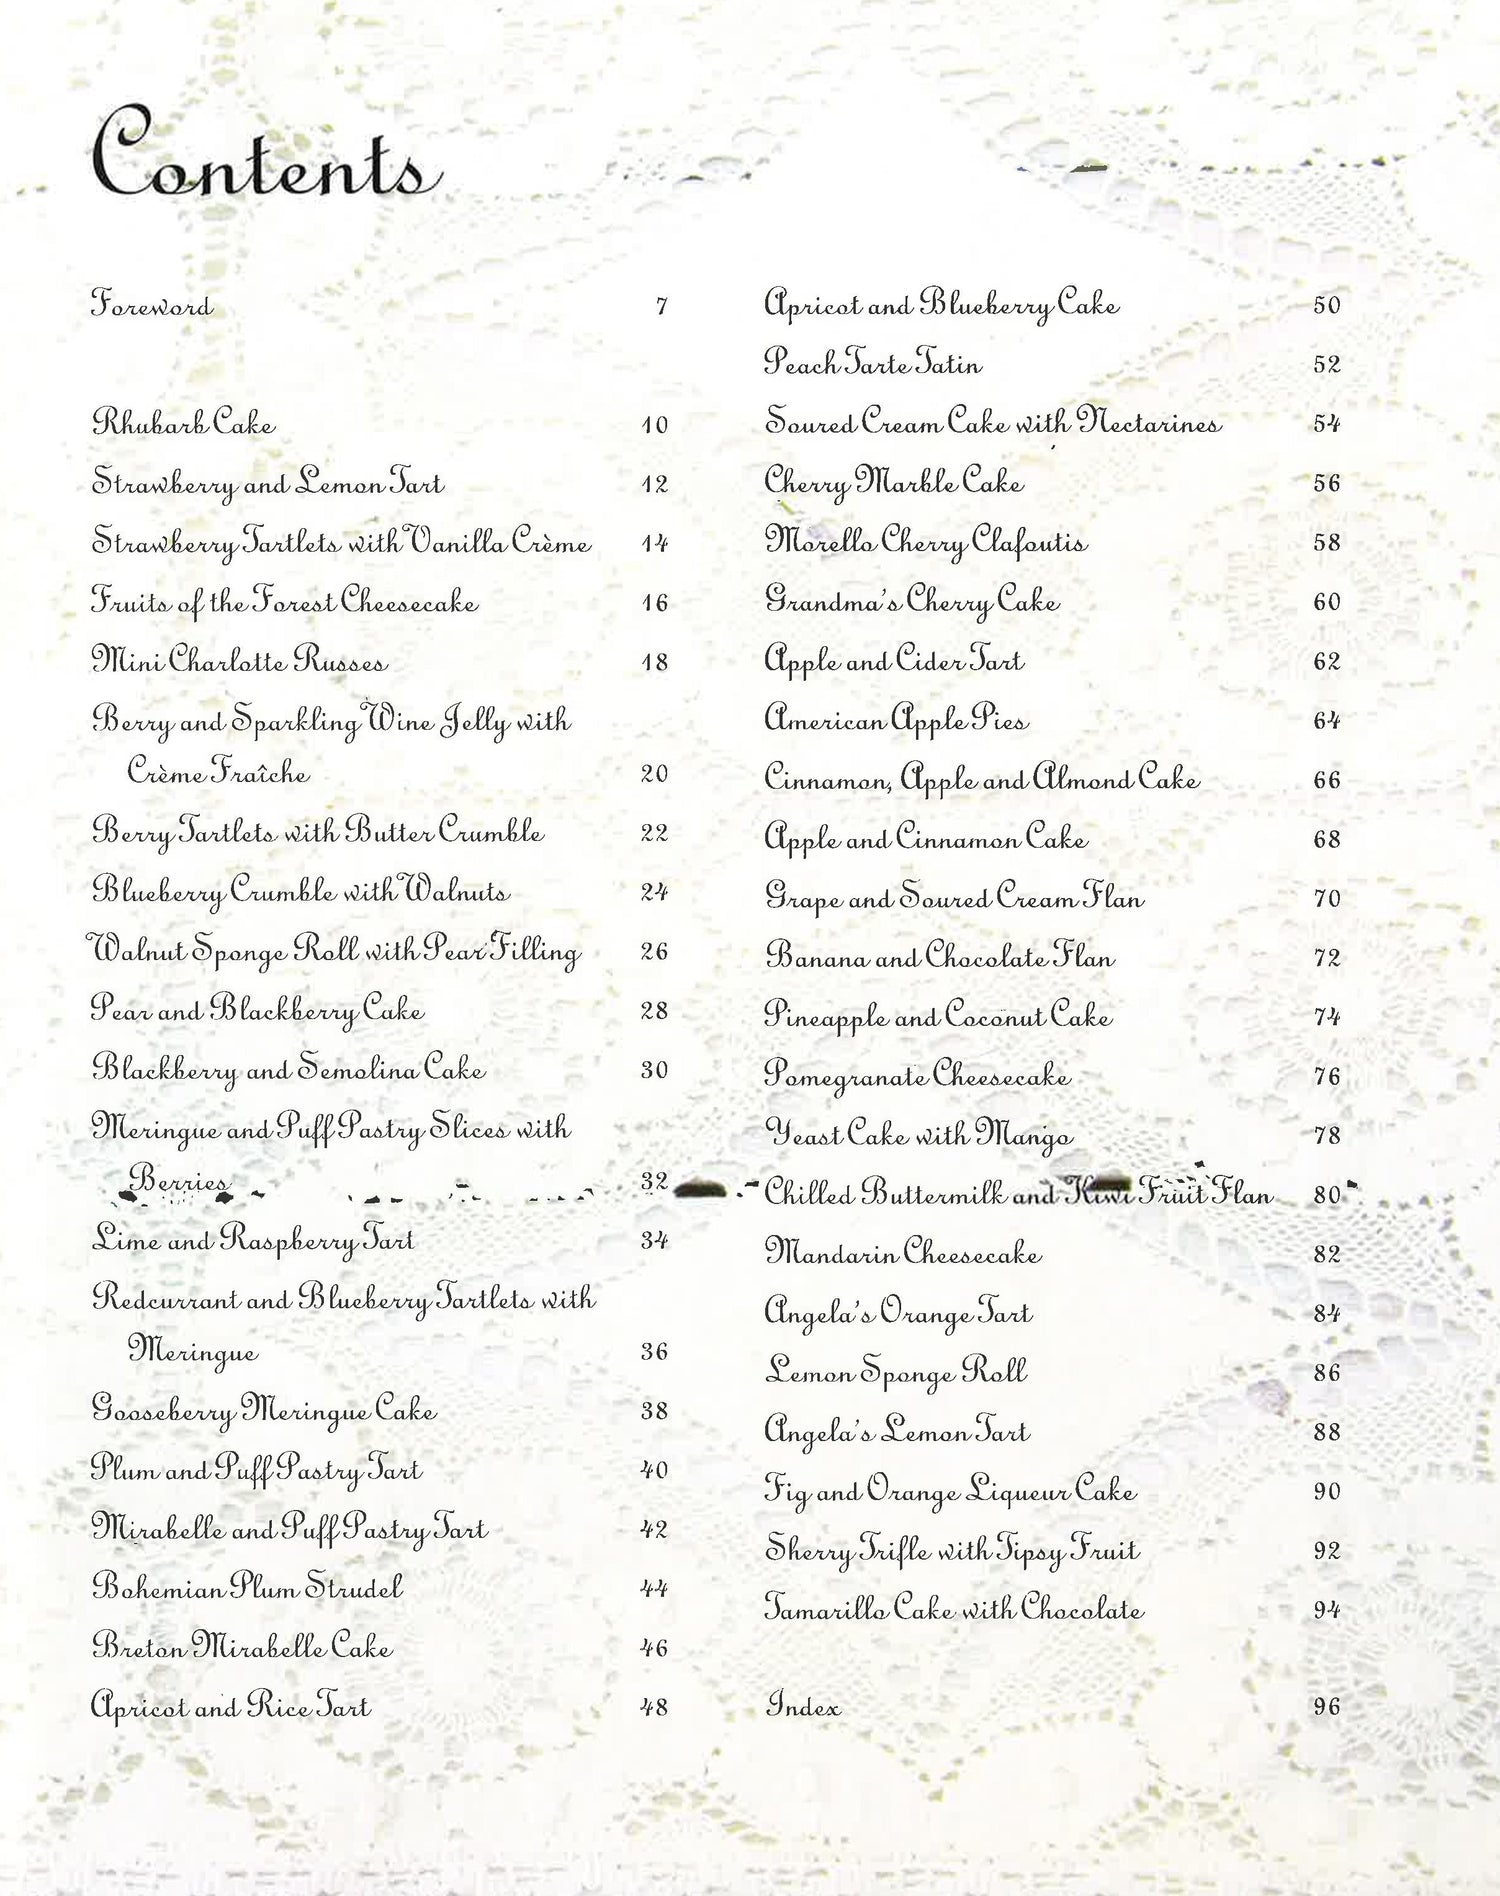 Contents
Foreword 7
Rhubarb Cake 10
Strawberry and Lemon Tart 12
Strawberry Tartlets with Vanilla Crème 14
Fruits of the Forest Cheesecake 16
Mini Charlotte Russes 18
Berry and Sparkling Wine Jelly with
Crème Fraîche 20
Berry Tartlets with Butter Crumble 22
Blueberry Crumble with Walnuts 24
Walnut Sponge Roll with Pear Filling 26
Pear and Blackberry Cake 28
Blackberry and Semolina Cake 30
Meringue and Puff Pastry Slices with
Berries 32
Lime and Raspberry Tart 34
Redcurrant and Blueberry Tartlets with
Meringue 36
Gooseberry Meringue Cake 38
Plum and Puff Pastry Tart 40
Mirabelle and Puff Pastry Tart 42
Bohemian Plum Strudel 44
Breton Mirabelle Cake 46
Apricot and Rice Tart 48
Apricot and Blueberry Cake 50
Peach Tarte Tatin 52
Soured Cream Cake with Nectarines 54
Cherry Marble Cake 56
Morello Cherry Clafoutis 58
Grandma's Cherry Cake 60
Apple and Cider Tart 62
American Apple Pies 64
Cinnamon, Apple and Almond Cake 66
Apple and Cinnamon Cake 68
Grape and Soured Cream Flan 70
Banana and Chocolate Flan 72
Pineapple and Coconut Cake 74
Pomegranate Cheesecake 76
Yeast Cake with Mango 78
Chilled Buttermilk and Kiwi Fruit Flan 80
Mandarin Cheesecake 82
Angela's Orange Tart 84
Lemon Sponge Roll 86
Angela's Lemon Tart 88
Fig and Orange Liqueur Cake 90
Sherry Trifle with Tipsy Fruit 92
Tamarillo Cake with Chocolate 94
Index 96